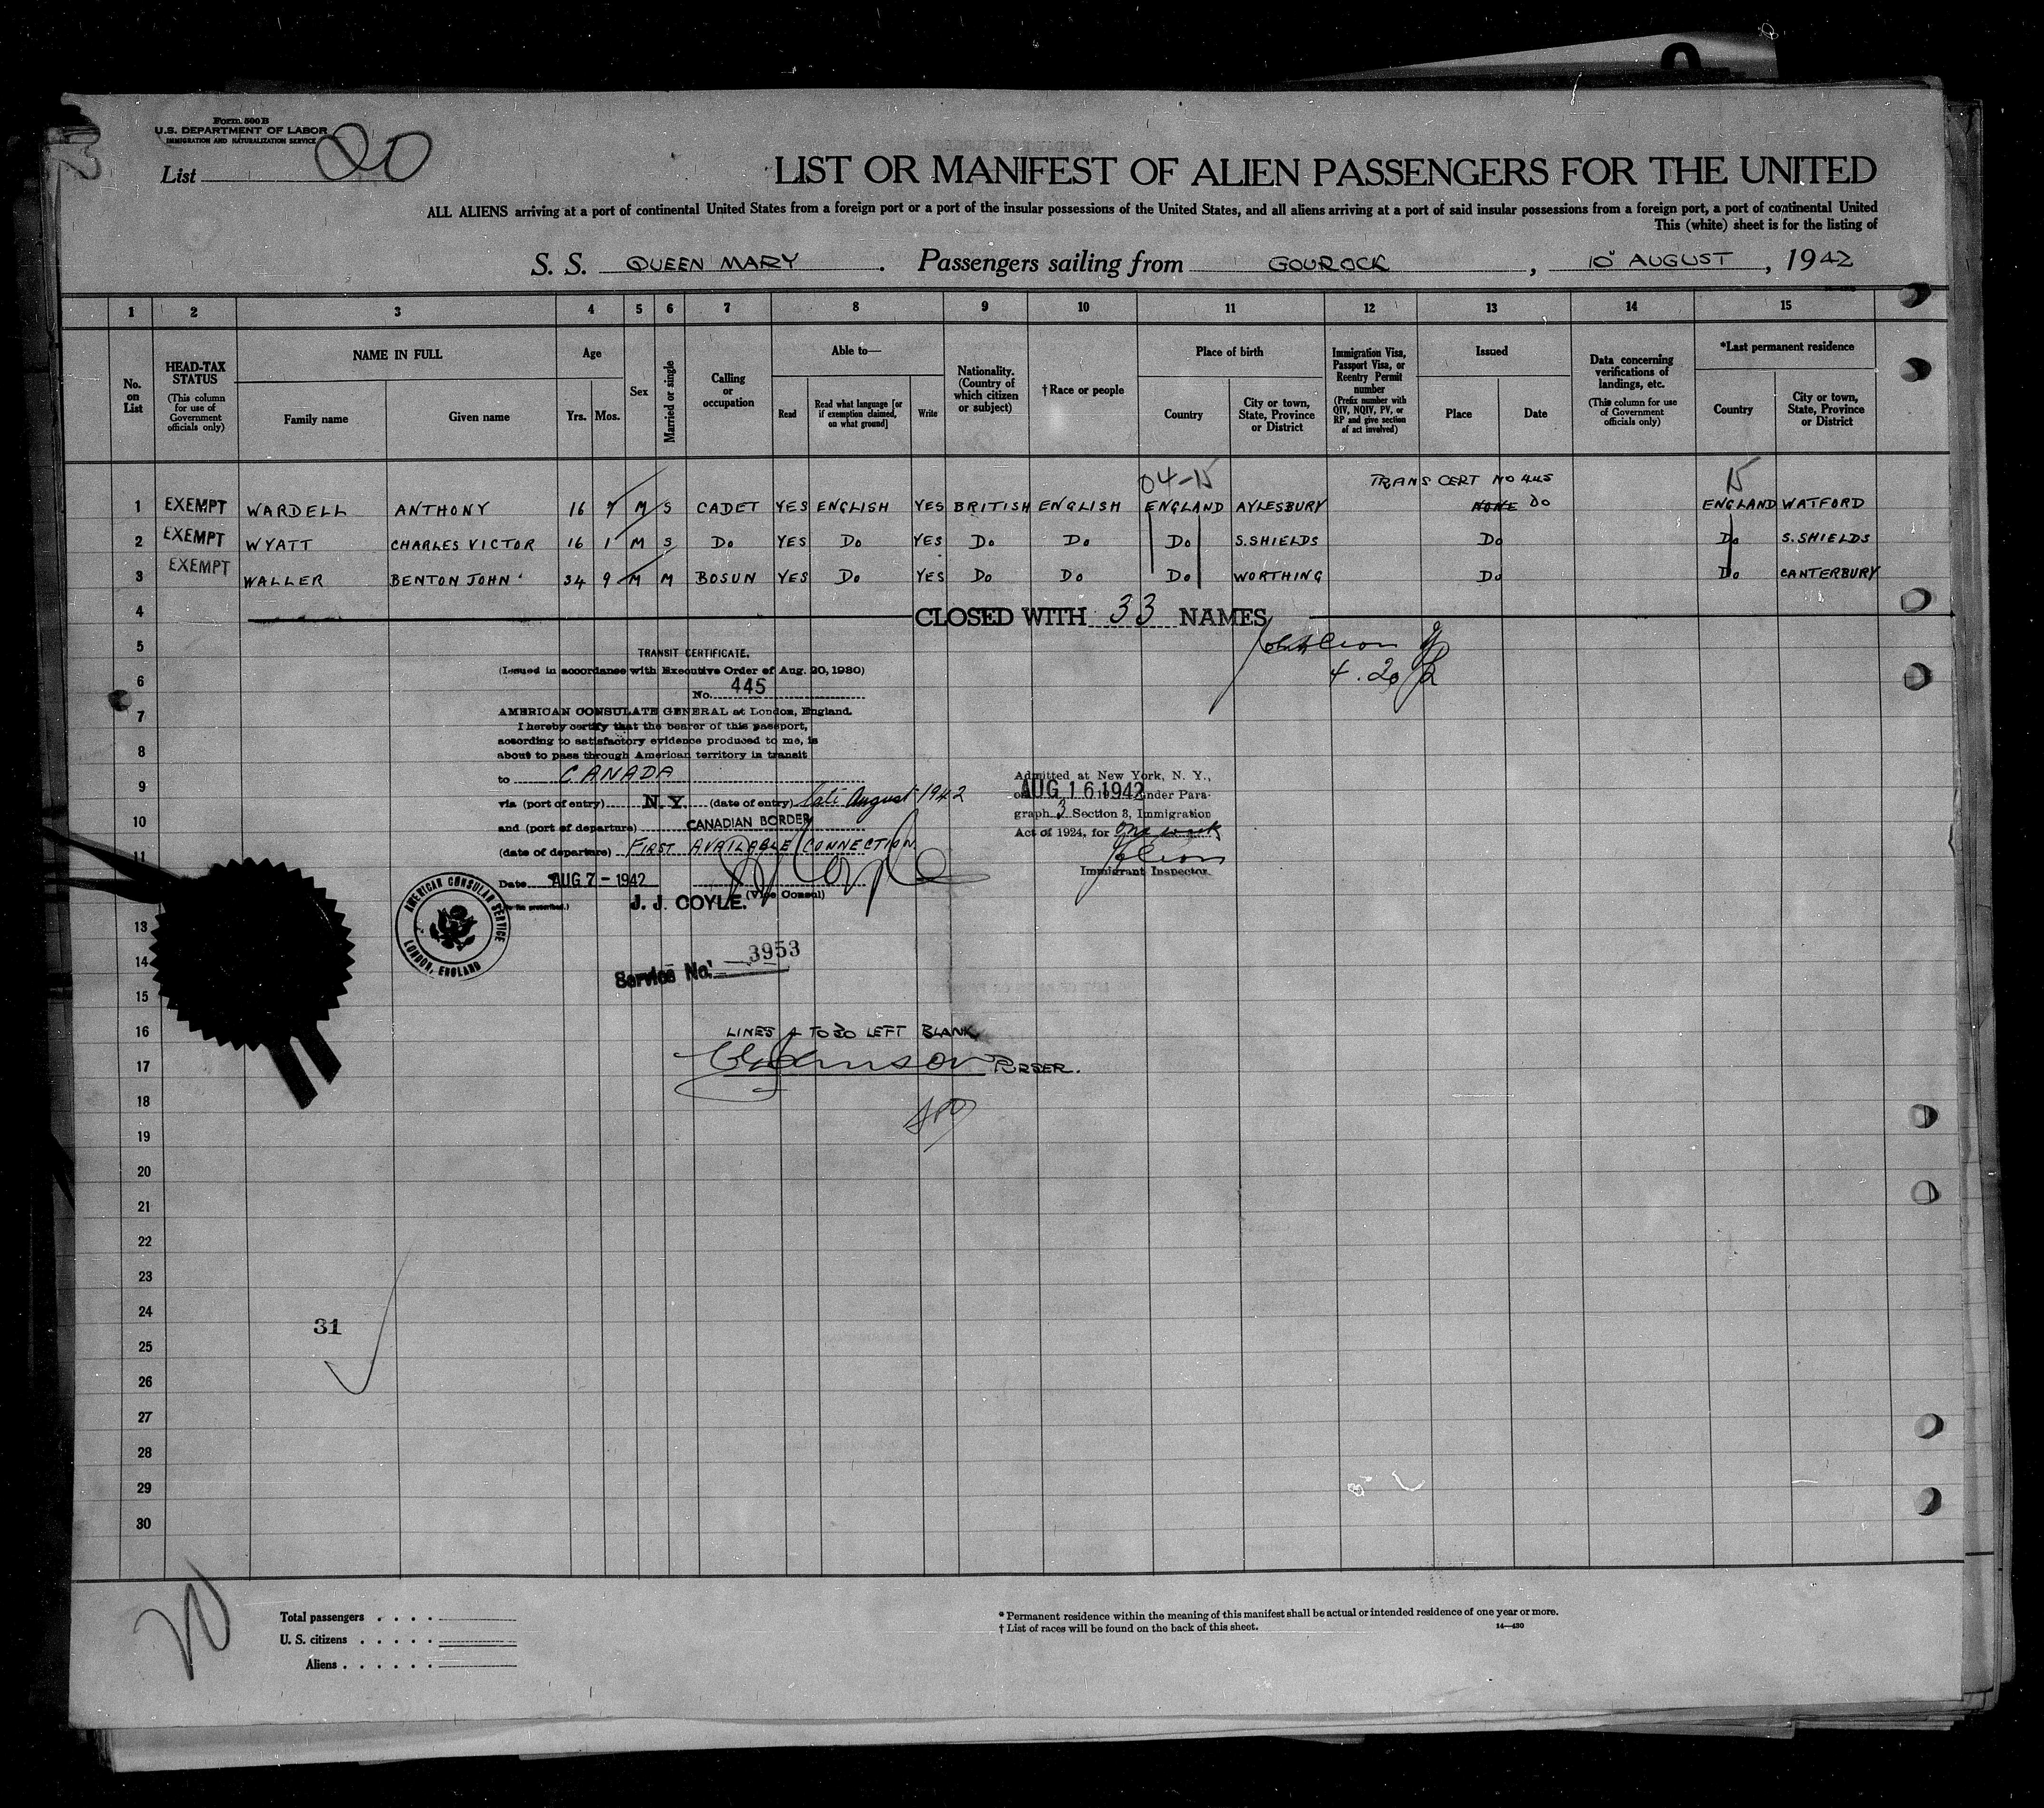 Form 500 B
U.S. DEPARTMENT OF LABOR
IMMIGRATION AND NATURALIZATION SERVICE
List 20
LIST OR MANIFEST OF ALIEN PASSENGERS FOR THE UNITED
ALL ALIENS arriving at a port of continental United States from a foreign port or a port of the insular possessions of the United States, and all aliens arriving at a port of said insular possessions from a foreign port, a port of continental United
This (white) sheet is for the listing of
S. S. QUEEN MARY. Passengers sailing from GOUROCK, 10 AUGUST, 1942
1 2 3 4 5 6 7 8 9 10 11 12 13 14 15
No. on List
HEAD-TAX STATUS
(This column for use of Government officials only)
NAME IN FULL
Family name
Given name
Age
Yrs.
Mos.
Sex
Married or single
Calling or occupation
Able to—
Read
Read what language [or if exemption claimed, on what ground]
Write
Nationality. (Country of which citizen or subject)
† Race or people
Place of birth
Country
City or town, State, Province or District
Immigration Visa, Passport Visa, or Reentry Permit number
(Prefix number with QIV, NQIV, PV, or RP and give section of act involved)
Issued
Place
Date
Data concerning verifications of landings, etc.
(This column for use of Government officials only)
*Last permanent residence
Country
City or town, State, Province or District
04-15
TRANS CERT NO 445
15
1 EXEMPT WARDELL ANTHONY 16 7 M S CADET YES ENGLISH YES BRITISH ENGLISH ENGLAND AYLESBURY NONE DO ENGLAND WATFORD
2 EXEMPT WYATT CHARLES VICTOR 16 1 M S DO YES DO YES DO DO DO S.SHIELDS DO DO S.SHIELDS
3 EXEMPT WALLER BENTON JOHN 34 9 M M BOSUN YES DO YES DO DO DO WORTHING DO DO CANTERBURY
4 CLOSED WITH 33 NAMES
5
6
7
8
9
10
11
13
14
15
16
17
18
19
20
21
22
23
24
25
26
27
28
29
30
TRANSIT CERTIFICATE.
(Issued in accordance with Executive Order of Aug. 20, 1930)
No. 445
AMERICAN CONSULATE GENERAL at London, England.
I hereby certify that the bearer of this passport,
according to satisfactory evidence produced to me, is
about to pass through American territory in transit
to CANADA
via (port of entry) N.Y. (date of entry) late August 1942
and (port of departure) CANADIAN BORDER
(date of departure) FIRST AVAILABLE CONNECTION
Date AUG 7 - 1942
J. J. COYLE. (Vice Consul)
AMERICAN CONSULAR SERVICE
LONDON, ENGLAND
Service No. 3953
Admitted at New York, N. Y.,
on AUG 16 1942 under Para-
graph 3 Section 3, Immigration
Act of 1924, for one week
Immigrant Inspector
LINES 4 TO 30 LEFT BLANK
PURSER.
31
20
Total passengers
U. S. citizens
Aliens
* Permanent residence within the meaning of this manifest shall be actual or intended residence of one year or more.
† List of races will be found on the back of this sheet.
14—430